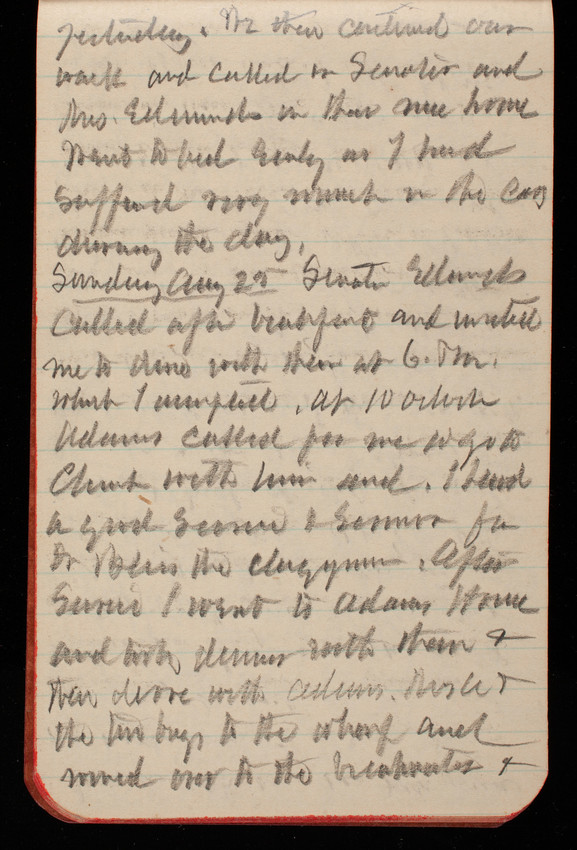 yesterday. We then continued our
walk and called on Senator and
Mrs. Edmunds in their new home
Went to bed early as I had
suffered very much in the Cars
during the day.
Sunday Aug 25 Senator Edmunds
Called after breakfast and invited
me to dine with them at 6. P.M.
which I accepted. At 10 oclock
Adams called for me to go to
Church with him and. I heard
a good service & sermon
Dr Bliss the clergyman. After
Service I went to Adams House
and took dinner with them &
then drove with Adams. &
the two boys to the wharf and
rowed over to the breakwater &